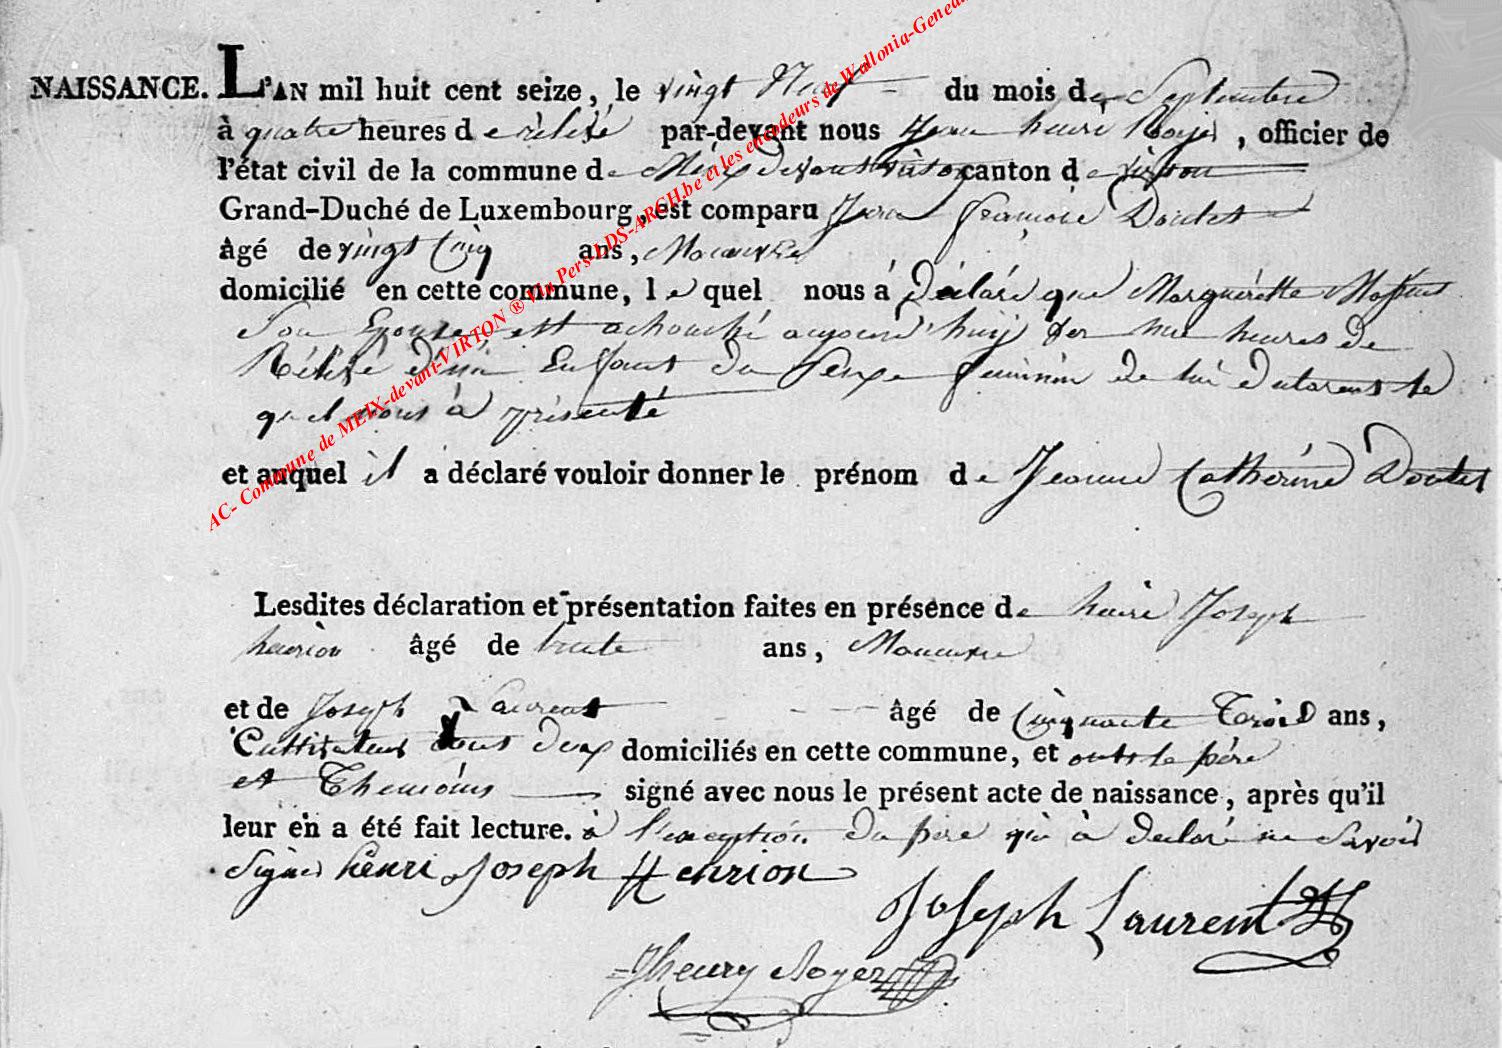 NAISSANCE. L'AN mil huit cent seize, le vingt Neuf du mois de Septembre
à quatre heures de rélevé par-devant nous Jean henri Royer, officier de
l'état civil de la commune de Meix devant virton canton de virton
Grand-Duché de Luxembourg, est comparu Jean françois Doutet
âgé de vingt Cinq ans, Manœuvre
domicilié en cette commune, le quel nous à déclaré que Marguérette
Son Epouse est achouché aujourd'huij heures de
Rélévé d'un Enfant du Sexe feminin de lui déclarant le
quel nous à présenté
et auquel il a déclaré vouloir donner le prénom de Jeanne Catherine Doutet
Lesdites déclaration et présentation faites en présence de henri Joseph
henrion âgé de trente ans, Manœuvre
et de Joseph Laurent âgé de Cinquante Trois ans,
Cultivateur tous deux domiciliés en cette commune, et outre le père
et Themoins signé avec nous le présent acte de naissance, après qu'il
leur en a été fait lecture. à l'exception du père qui à declaré ne Savoir
Signer henri Joseph Henrion
Joseph Laurent
Jhenry Royer
AC- Commune de MEIX-devant-VIRTON ® Via Pers-LDS-ARCH.be et les encodeurs de Wallonia-Genea